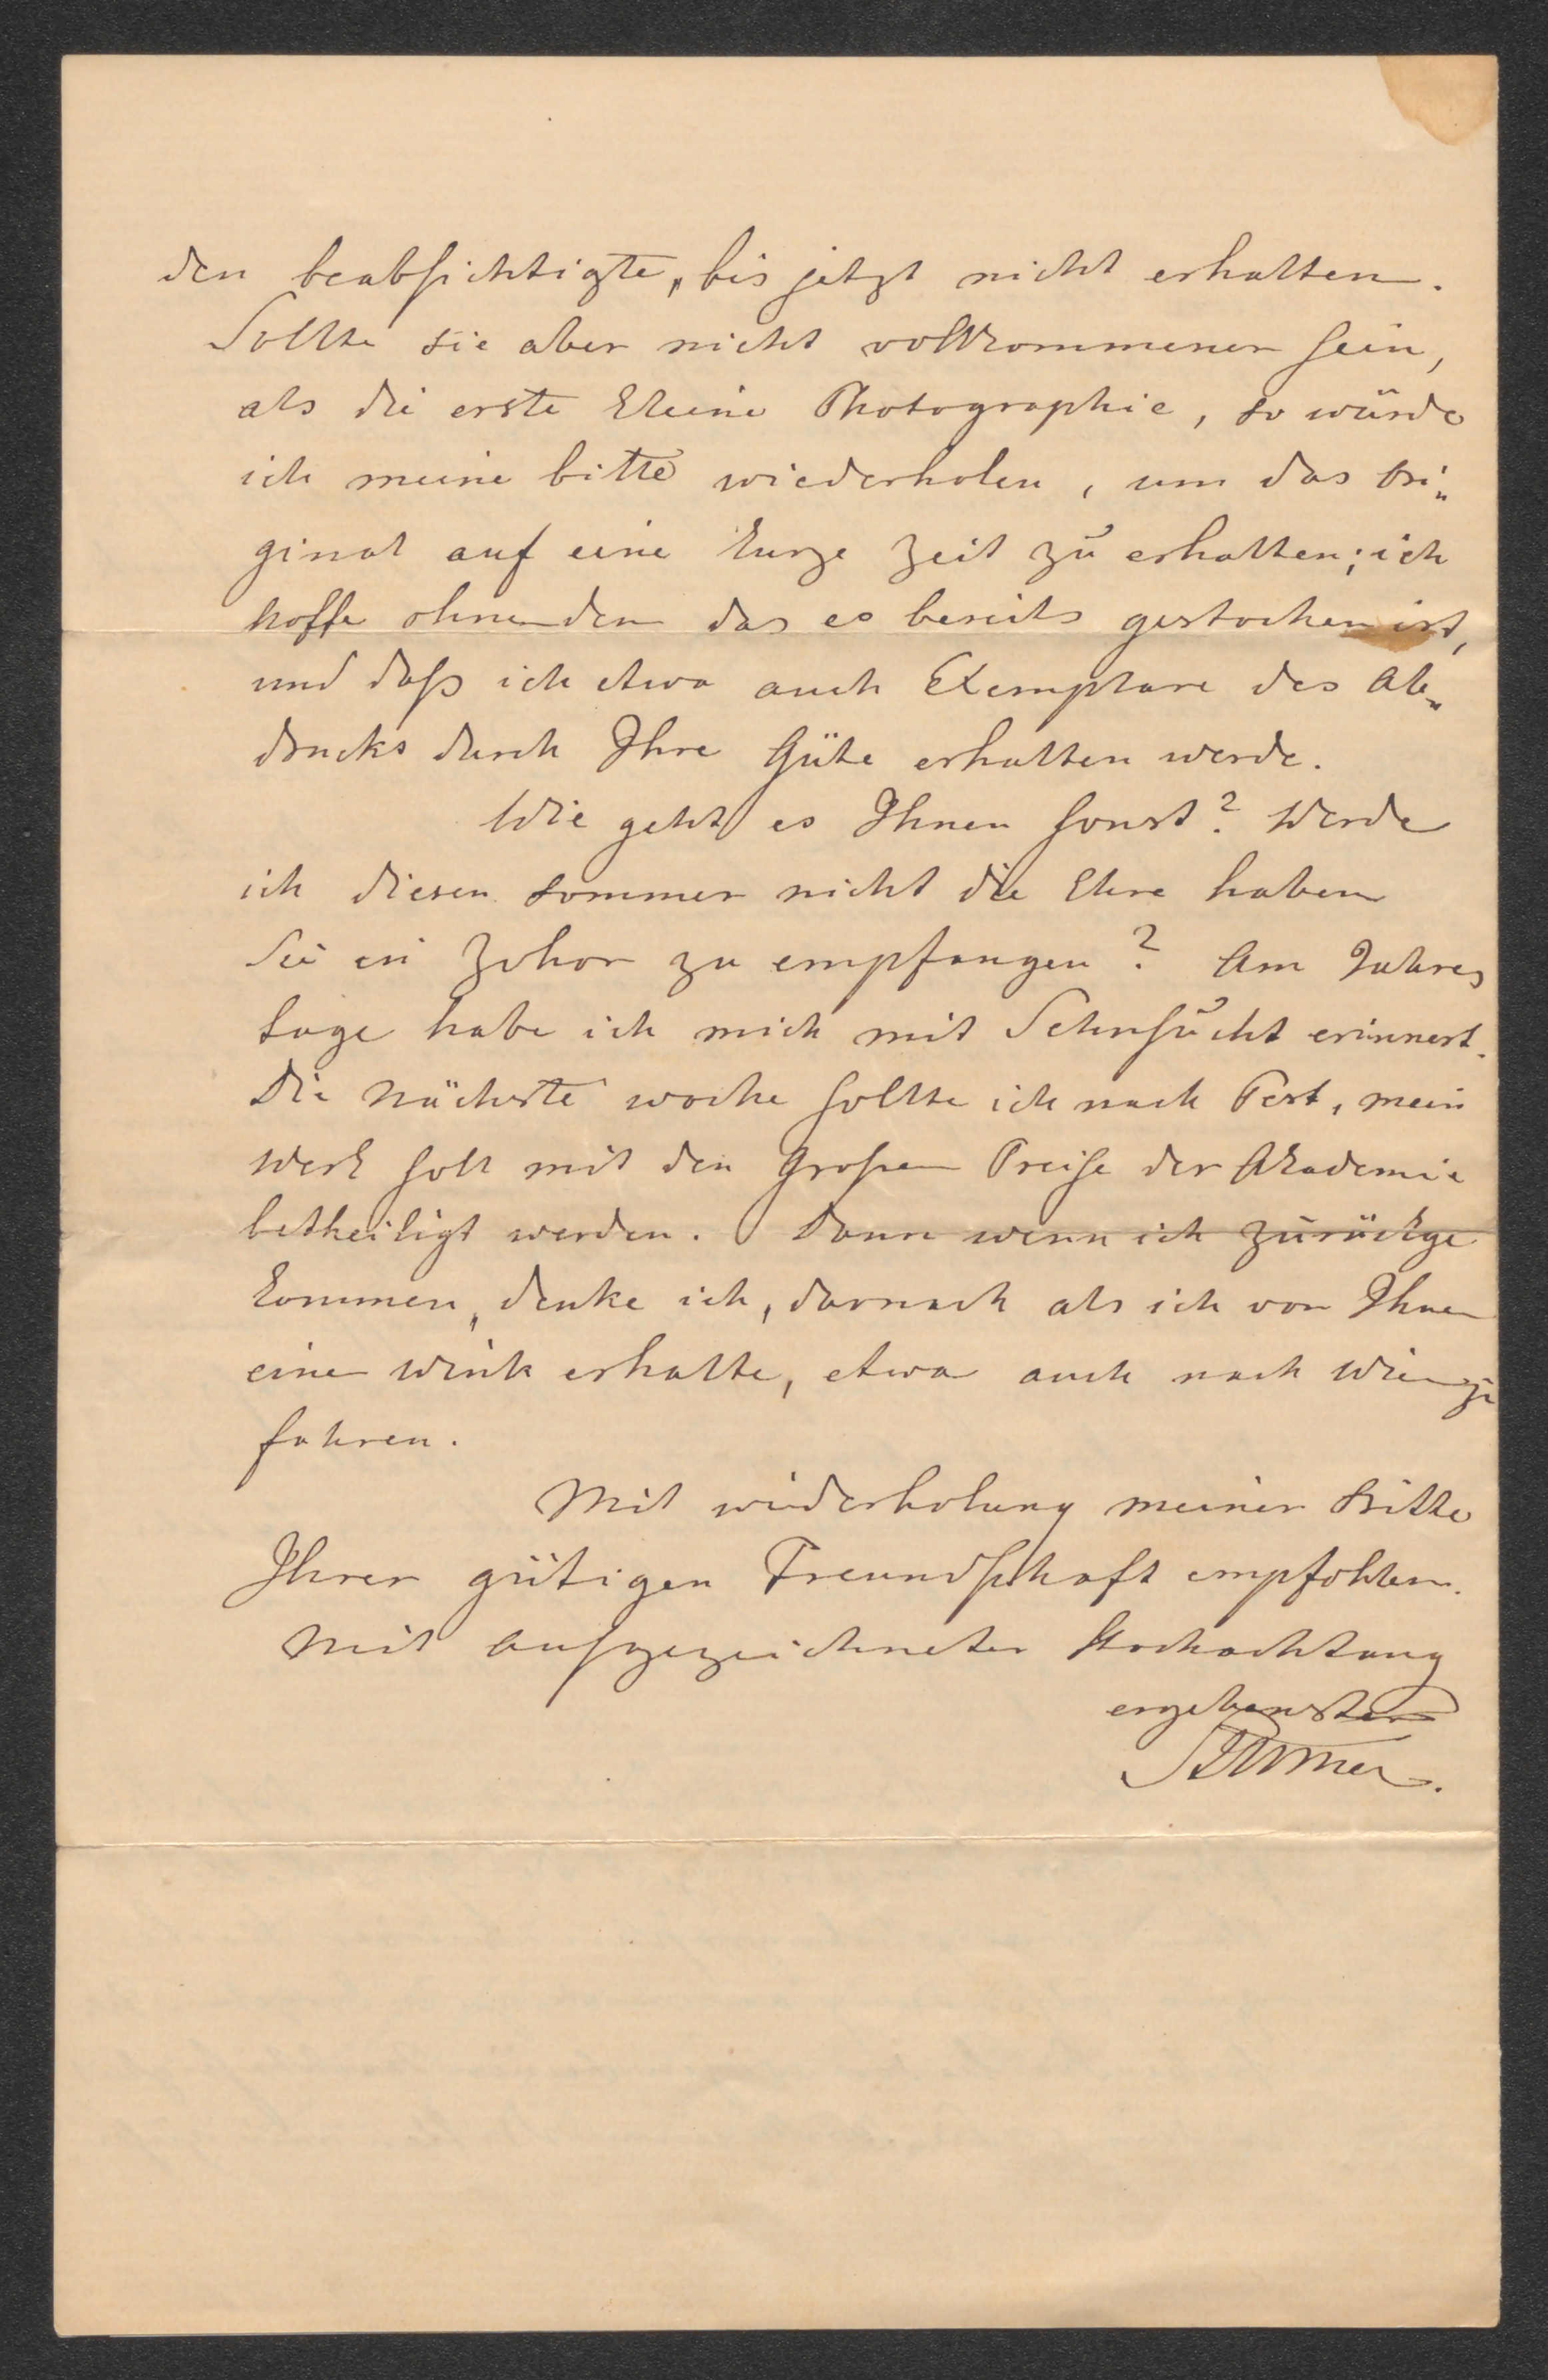 den beabsichtigte, bis jetzt nicht erhalten.
Sollte sie aber nicht vollkommener sein,
als die erste kleine Photographie, so würde
ich meine bitte wiederholen, um das Ori„
ginal auf eine kurze Zeit zu erhalten; ich
hoffe ohnenden das es bereits gestochen ist,
und daß ich etwa auch Exemplare des Ab„
drucks durch Ihre Güte erhalten werde.
Wie geht es Ihnen sonst? Werde
ich diesen sommer nicht die Ehre haben
Sie in Zohor zu empfangen? Am Jahres
tage habe ich mich mit Sehnsucht erinnert.
Die Nächste woche sollte ich nach Pest, mein
Werk soll mit den Großen Preise der Akademie
betheiligt werden. Dann wenn ich zurückge
kommen, denke ich, darnach als ich von Ihnen
einen Wink erhalte, etwa auch nach Wien zu
fahren.
Mit wiederholung meiner Bitte
Ihrer gütigen Freundschaft empfohlen.
Mit ausgezeichneter Hochachtung
ergebenster